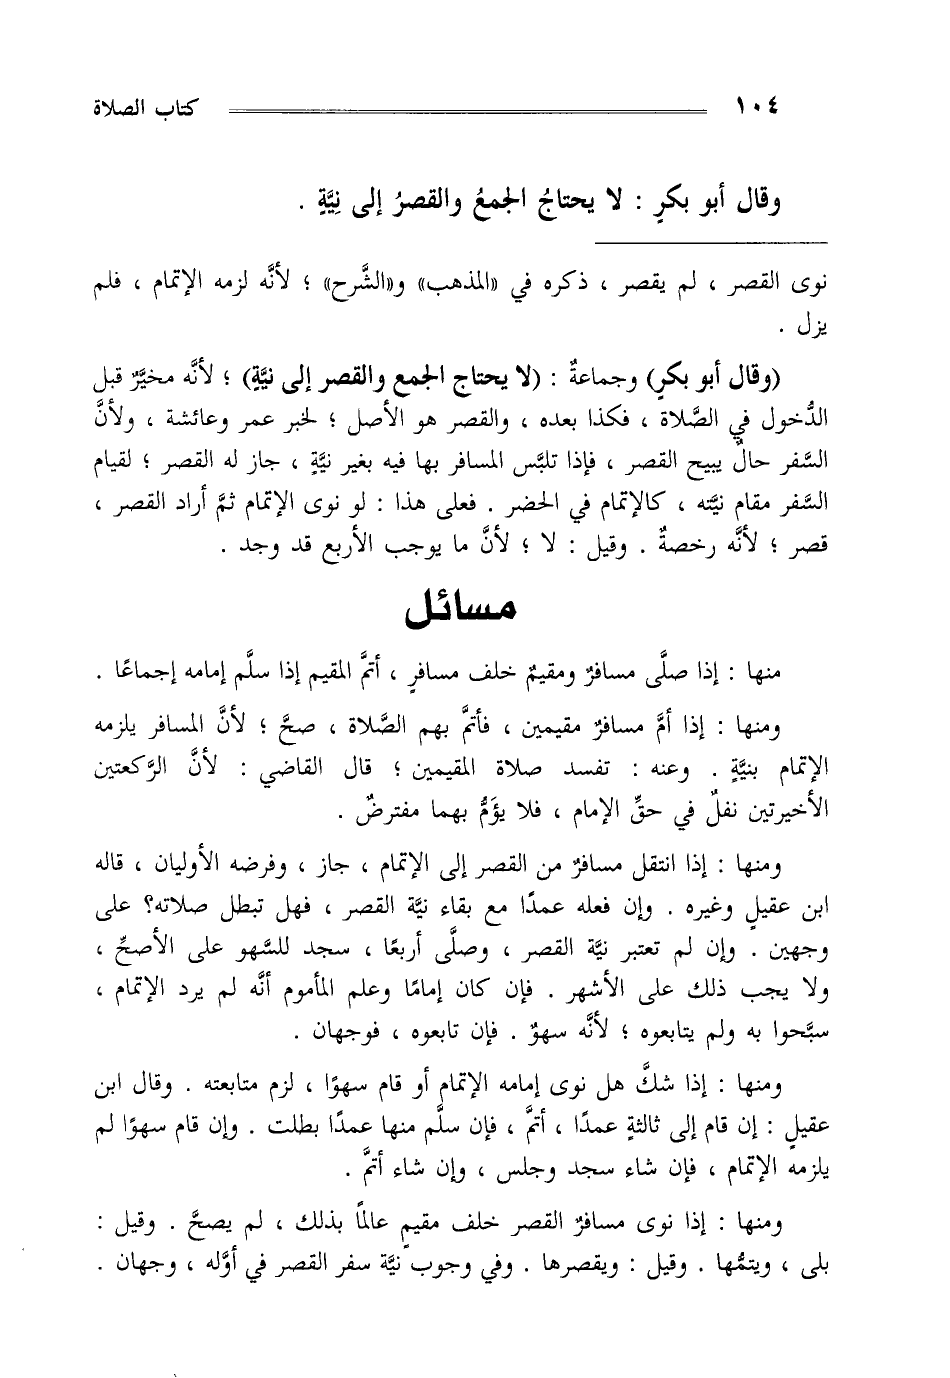 ١٠٤ كتاب الصلاة
وقال أبو بكرٍ : لا يحتاجُ الجمعُ والقصرُ إلى نِيَّةٍ .
نوى القصر ، لم يقصر ، ذكره في «المذهب» و«الشَّرح» ؛ لأنَّه لزمه الإتمام ، فلم
يزل .
(وقال أبو بكرٍ) وجماعةٌ : (لا يحتاج الجمع والقصر إلى نيَّةٍ) ؛ لأنَّه مخيَّرٌ قبل
الدُّخول في الصَّلاة ، فكذا بعده ، والقصر هو الأصل ؛ لخبر عمر وعائشة ، ولأنَّ
السَّفر حالٌ يبيح القصر ، فإذا تلبَّس المسافر بها فيه بغير نيَّةٍ ، جاز له القصر ؛ لقيام
السَّفر مقام نيَّته ، كالإتمام في الحضر . فعلى هذا : لو نوى الإتمام ثمَّ أراد القصر ،
قصر ؛ لأنَّه رخصةٌ . وقيل : لا ؛ لأنَّ ما يوجب الأربع قد وجد .
مسائل
منها : إذا صلَّى مسافرٌ ومقيمٌ خلف مسافرٍ ، أتمَّ المقيم إذا سلَّم إمامه إجماعًا .
ومنها : إذا أمَّ مسافرٌ مقيمين ، فأتمَّ بهم الصَّلاة ، صحَّ ؛ لأنَّ المسافر يلزمه
الإتمام بنيَّةٍ . وعنه : تفسد صلاة المقيمين ؛ قال القاضي : لأنَّ الرَّكعتين
الأخيرتين نفلٌ في حقِّ الإمام ، فلا يؤَمُّ بهما مفترضٌ .
ومنها : إذا انتقل مسافرٌ من القصر إلى الإتمام ، جاز ، وفرضه الأوليان ، قاله
ابن عقيلٍ وغيره . وإن فعله عمدًا مع بقاء نيَّة القصر ، فهل تبطل صلاته؟ على
وجهين . وإن لم تعتبر نيَّة القصر ، وصلَّى أربعًا ، سجد للسَّهو على الأصحِّ ،
ولا يجب ذلك على الأشهر . فإن كان إمامًا وعلم المأموم أنَّه لم يرد الإتمام ،
سبَّحوا به ولم يتابعوه ؛ لأنَّه سهوٌ . فإن تابعوه ، فوجهان .
ومنها : إذا شكَّ هل نوى إمامه الإتمام أو قام سهوًا ، لزم متابعته . وقال ابن
عقيلٍ : إن قام إلى ثالثةٍ عمدًا ، أتمَّ ، فإن سلَّم منها عمدًا بطلت . وإن قام سهوًا لم
يلزمه الإتمام ، فإن شاء سجد وجلس ، وإن شاء أتمَّ .
ومنها : إذا نوى مسافرٌ القصر خلف مقيمٍ عالمًا بذلك ، لم يصحَّ . وقيل :
بلى ، ويتمُّها . وقيل : ويقصرها . وفي وجوب نيَّة سفر القصر في أوَّله ، وجهان .